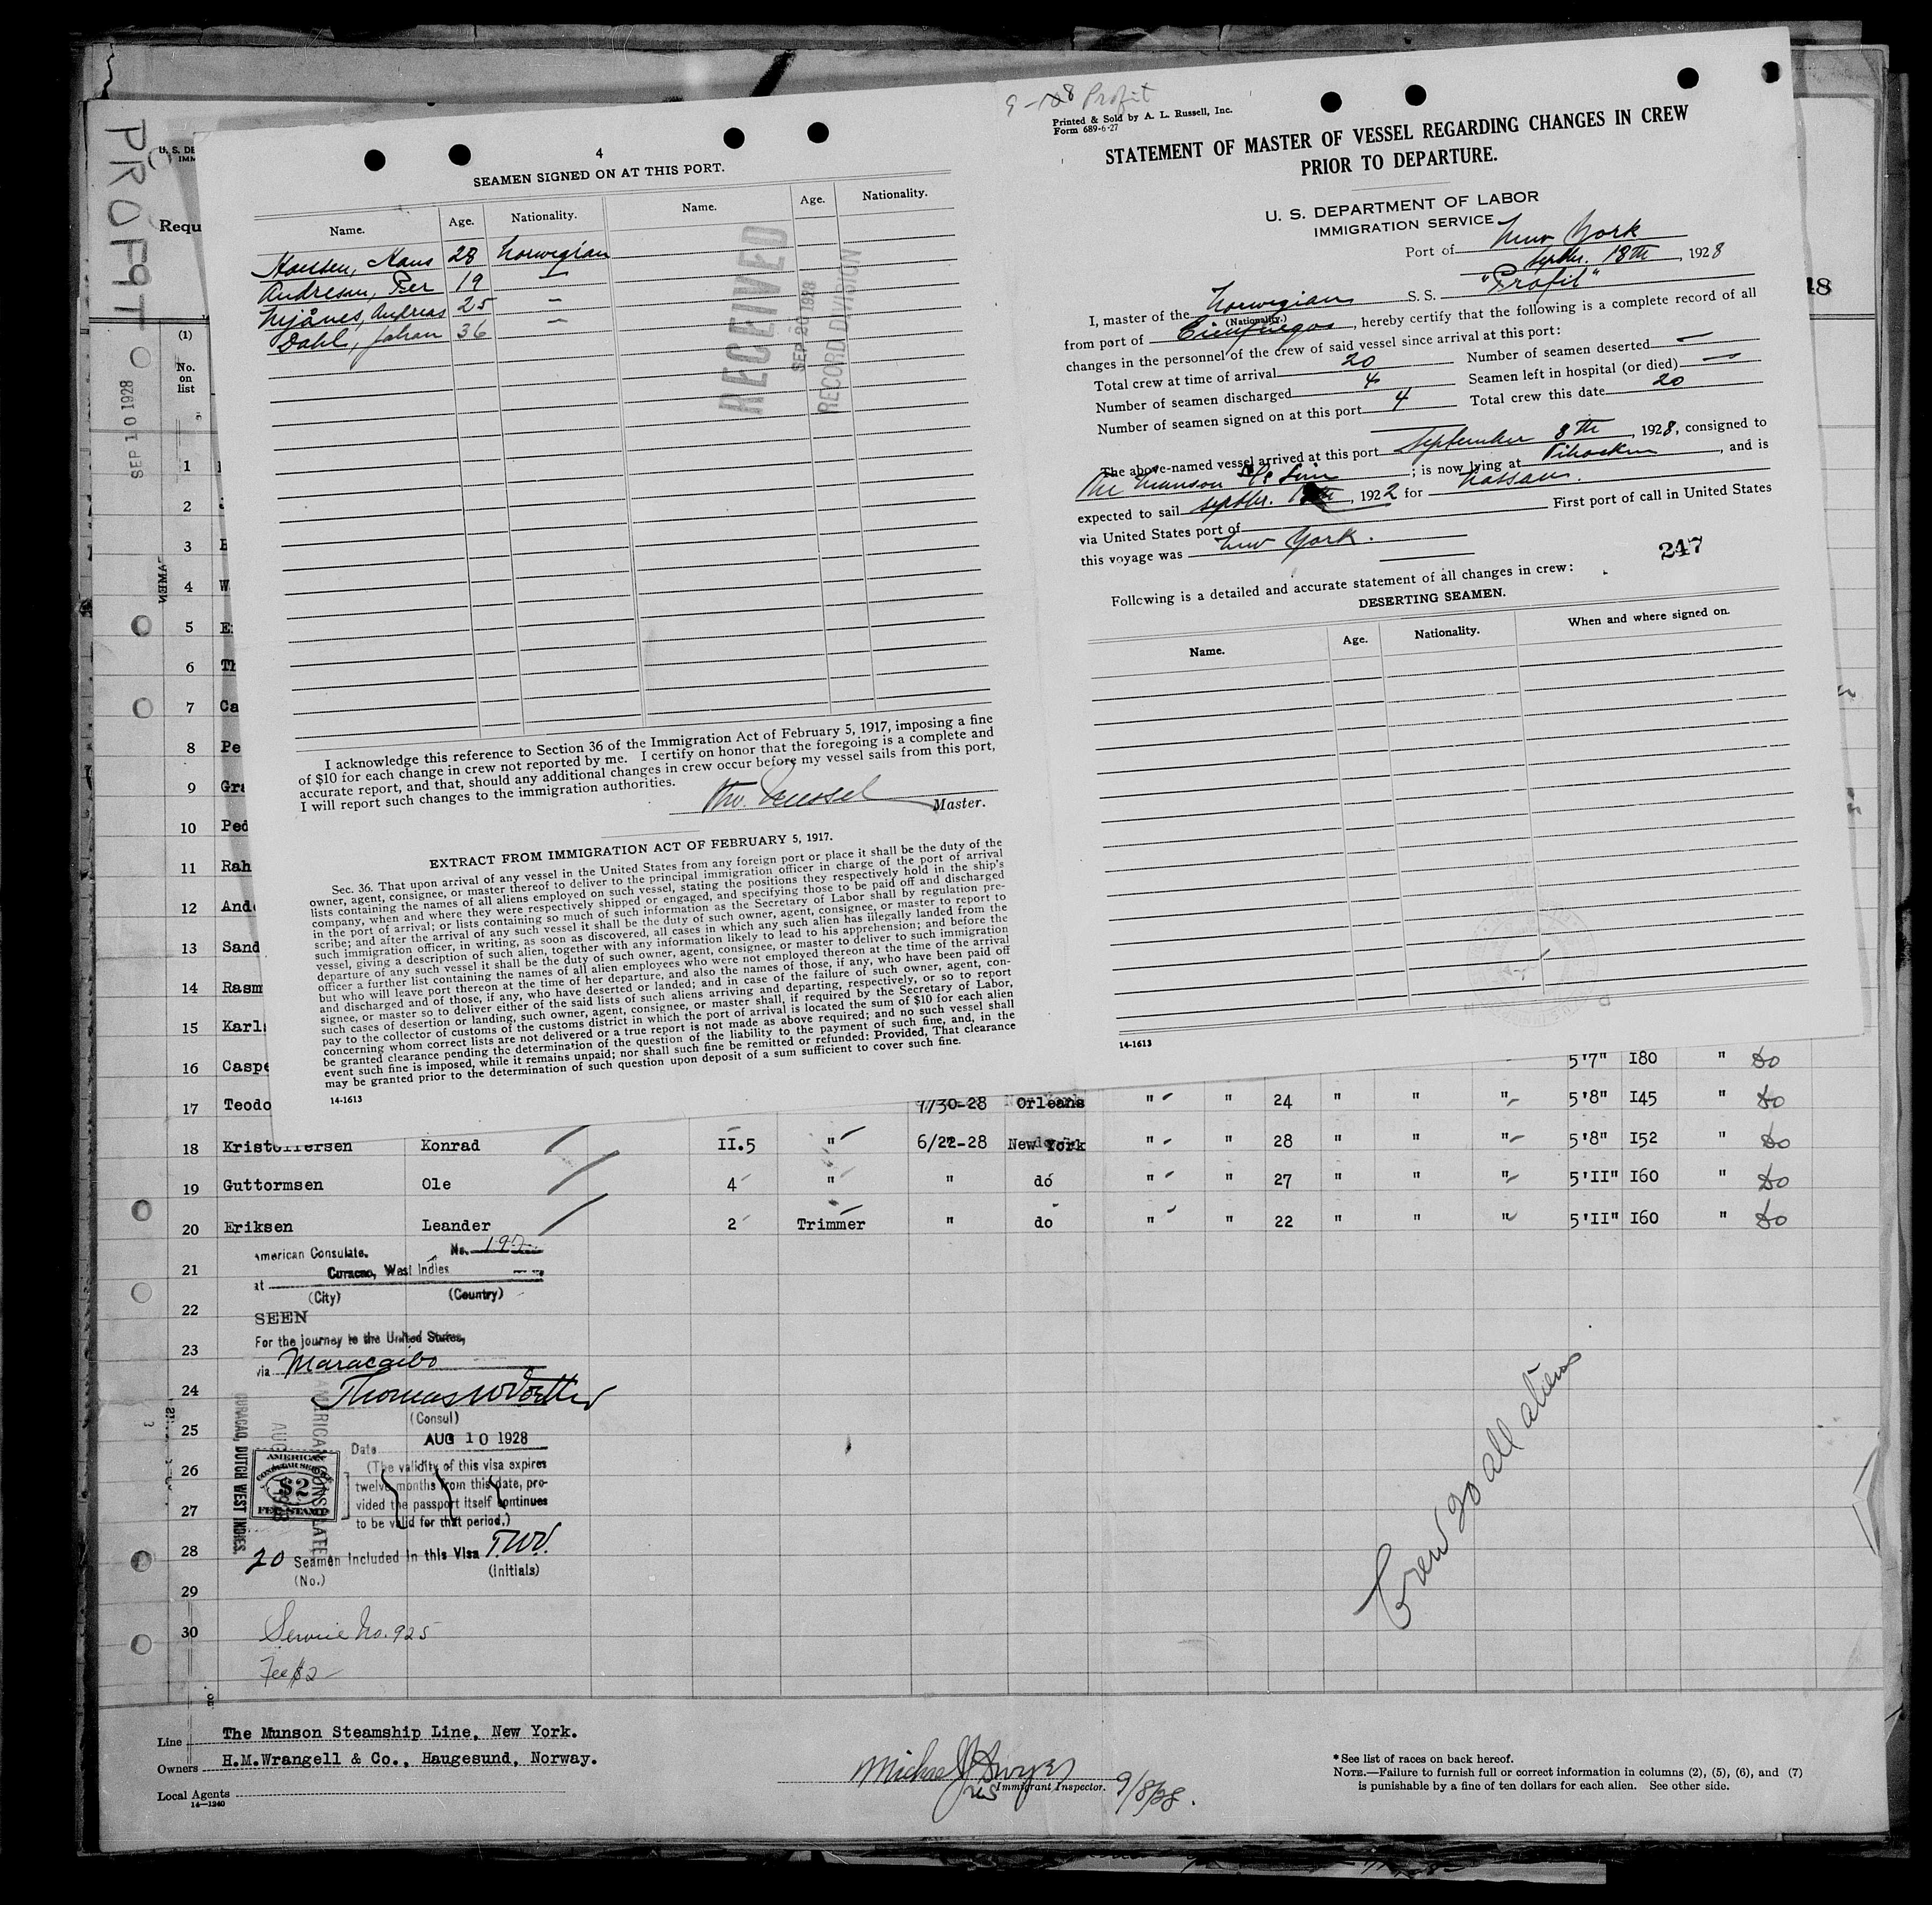 PROFIT
SEP 10 1928
U. S. DE
IMM
Requ
4
SEAMEN SIGNED ON AT THIS PORT.
Name. Age. Nationality. Name. Age. Nationality.
Hansen, Hans 28 Norwegian
Andresen, Per 19 —
Andreas 25 —
Dahl, Johan 36 —
RECEIVED
SEP 20 1928
RECORD DIVISION
I acknowledge this reference to Section 36 of the Immigration Act of February 5, 1917, imposing a fine
of $10 for each change in crew not reported by me. I certify on honor that the foregoing is a complete and
accurate report, and that, should any additional changes in crew occur before my vessel sails from this port,
I will report such changes to the immigration authorities.
Master.
EXTRACT FROM IMMIGRATION ACT OF FEBRUARY 5, 1917.
Sec. 36. That upon arrival of any vessel in the United States from any foreign port or place it shall be the duty of the
owner, agent, consignee, or master thereof to deliver to the principal immigration officer in charge of the port of arrival
lists containing the names of all aliens employed on such vessel, stating the positions they respectively hold in the ship's
company, when and where they were respectively shipped or engaged, and specifying those to be paid off and discharged
in the port of arrival; or lists containing so much of such information as the Secretary of Labor shall by regulation pre-
scribe; and after the arrival of any such vessel it shall be the duty of such owner, agent, consignee, or master to report to
such immigration officer, in writing, as soon as discovered, all cases in which any such alien has illegally landed from the
vessel, giving a description of such alien, together with any information likely to lead to his apprehension; and before the
departure of any such vessel it shall be the duty of such owner, agent, consignee, or master to deliver to such immigration
officer a further list containing the names of all alien employees who were not employed thereon at the time of the arrival
but who will leave port thereon at the time of her departure, and also the names of those, if any, who have been paid off
and discharged and of those, if any, who have deserted or landed; and in case of the failure of such owner, agent, con-
signee, or master so to deliver either of the said lists of such aliens arriving and departing, respectively, or so to report
such cases of desertion or landing, such owner, agent, consignee, or master shall, if required by the Secretary of Labor,
pay to the collector of customs of the customs district in which the port of arrival is located the sum of $10 for each alien
concerning whom correct lists are not delivered or a true report is not made as above required; and no such vessel shall
be granted clearance pending the determination of the question of the liability to the payment of such fine, and, in the
event such fine is imposed, while it remains unpaid; nor shall such fine be remitted or refunded: Provided, That clearance
may be granted prior to the determination of such question upon deposit of a sum sufficient to cover such fine.
14-1613
Profit
Printed & Sold by A. L. Russell, Inc.
Form 689-6-27
STATEMENT OF MASTER OF VESSEL REGARDING CHANGES IN CREW
PRIOR TO DEPARTURE.
U. S. DEPARTMENT OF LABOR
IMMIGRATION SERVICE
Port of New York
Septbr. 18th, 1928
I, master of the Norwegian S. S. "Profit"
(Nationality.)
from port of Cienfuegos, hereby certify that the following is a complete record of all
changes in the personnel of the crew of said vessel since arrival at this port:
Total crew at time of arrival 20 Number of seamen deserted —
Number of seamen discharged 4 Seamen left in hospital (or died) —
Number of seamen signed on at this port 4 Total crew this date 20
The above-named vessel arrived at this port September 8th, 1928, consigned to
The Munson S/S Line; is now lying at Hoboken, and is
expected to sail Septbr. , 1922 for Nassau.
via United States port of First port of call in United States
this voyage was New York.
247
Following is a detailed and accurate statement of all changes in crew:
DESERTING SEAMEN.
Name. Age. Nationality. When and where signed on.
14-1613
18
(1)
No.
on
list
1
2
3 E
4 W
5 E
6 Th
7 Ca
8 Pe
9 Gra
10 Ped
11 Rah
12 And
13 Sand
14 Rasm
15 Karl
16 Caspe 5'7" I80 " do
17 Teodo 7/30-28 Orleans " " 24 " " " 5'8" I45 " do
18 Kristoffersen Konrad II.5 " 6/22-28 New York " " 28 " " " 5'8" I52 " do
19 Guttormsen Ole 4 " " do " " 27 " " " 5'II" I60 " do
20 Eriksen Leander 2 Trimmer " do " " 22 " " " 5'II" I60 " do
21
22
23
24
25
26
27
28
29
30
American Consulate. No.
at Curacao, West Indies
(City) (Country)
SEEN
For the journey to the United States,
via Maracaibo
(Consul)
Date AUG 10 1928
(The validity of this visa expires
twelve months from this date, pro-
vided the passport itself continues
to be valid for that period.)
AMERICAN CONSULATE
CURACAO, DUTCH WEST INDIES.
AMERICAN
CONSULAR SERVICE
$2
FEE STAMP
20 Seamen included in this Visa T.W.V.
(No.) (Initials)
Service No. 925
Fee $2
Crew 20 all aliens
Line The Munson Steamship Line, New York.
Owners H.M.Wrangell & Co., Haugesund, Norway.
Local Agents
14—1240
Michael J Dwyer
Immigrant Inspector. 9/8/28.
*See list of races on back hereof.
NOTE.—Failure to furnish full or correct information in columns (2), (5), (6), and (7)
is punishable by a fine of ten dollars for each alien. See other side.